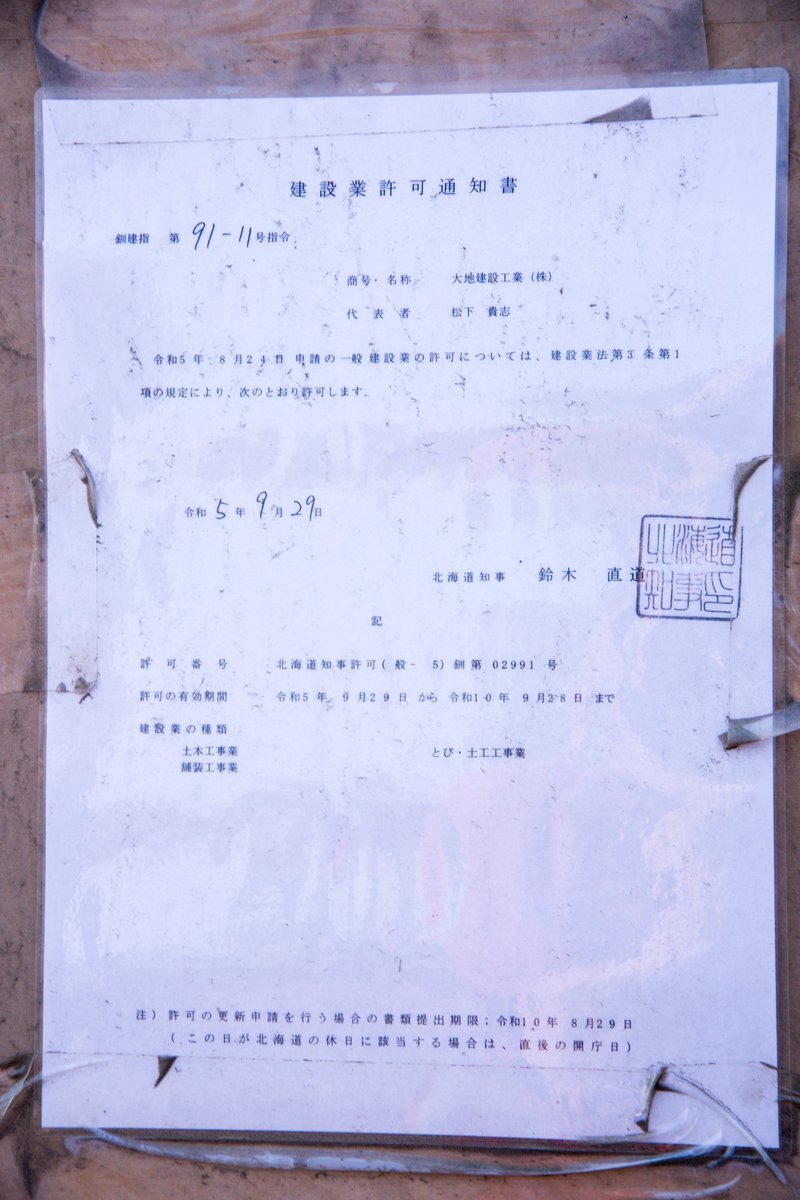 建設業許可通知書
釧建指 第 91-11号指令
商号・名称 大地建設工業（株）
代表者 松下 貴志
令和5年 8月24日 申請の一般建設業の許可については、建設業法第3条第1
項の規定により、次のとおり許可します。
令和 5年 9月29日
北海道知事 鈴木 直道
北海道知事印
記
許可番号 北海道知事許可(般-5)釧第02991号
許可の有効期間 令和5年 9月29日 から 令和10年 9月28日 まで
建設業の種類
土木工事業 とび・土工工事業
舗装工事業
注）許可の更新申請を行う場合の書類提出期限；令和10年 8月29日
（この日が北海道の休日に該当する場合は、直後の開庁日）